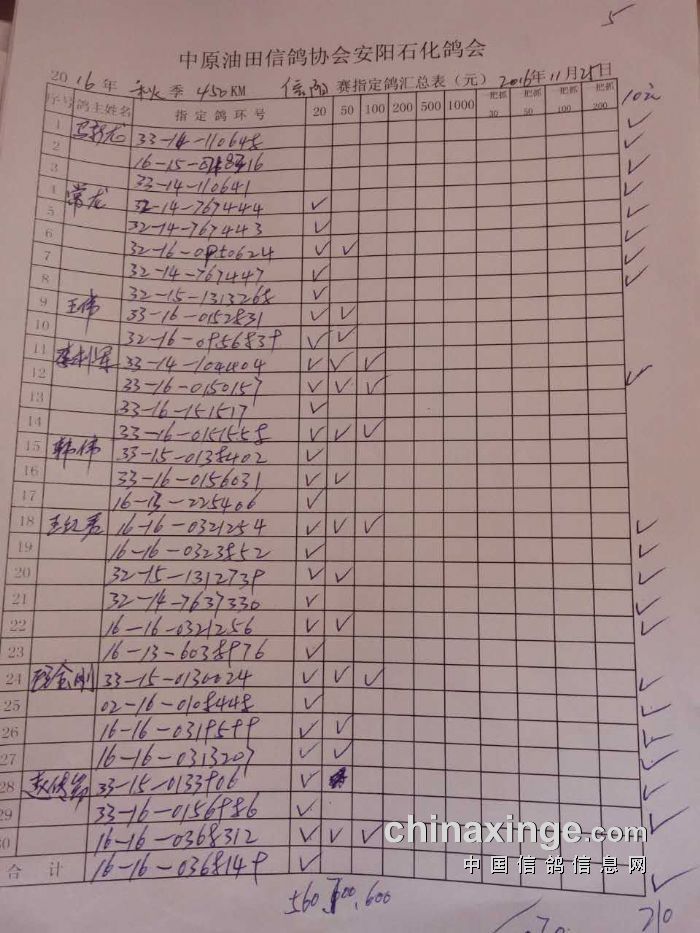 5
中原油田信鸽协会安阳石化鸽会
2016年 秋季 450KM 信阳 赛指定鸽汇总表（元） 2016年11月25日
序号 鸽主姓名 指定鸽环号 20 50 100 200 500 1000 一把抓30 一把抓50 一把抓100 一把抓200 10元
1 33-14-110648 ✓
2 ✓
3 33-14-110641 ✓
4 常龙 32-14-767444 ✓ ✓
5 32-14-767443 ✓ ✓
6 ✓ ✓ ✓
7 32-14-767447 ✓ ✓
8 32-15-1313268 ✓ ✓
9 王伟 33-16-0152831 ✓ ✓
10 32-16-0956839 ✓ ✓
11 33-14-104404 ✓ ✓ ✓
12 33-16-0150157 ✓ ✓ ✓ ✓
13 33-16-151517 ✓
14 33-16-0151558 ✓ ✓ ✓
15 韩伟 33-15-0138402 ✓
16 33-16-0156031 ✓ ✓
17 16-13-225406 ✓
18 16-16-0321254 ✓ ✓ ✓ ✓
19 16-16-0323852 ✓ ✓
20 32-15-1312739 ✓ ✓ ✓
21 32-14-7637330 ✓ ✓
22 16-16-0321256 ✓ ✓ ✓
23 16-13-6038976 ✓
24 33-15-0136024 ✓ ✓ ✓ ✓
25 02-16-0108448 ✓ ✓
26 16-16-0319599 ✓ ✓ ✓
27 16-16-0313207 ✓ ✓ ✓
28 33-15-0133906 ✓ ✓
29 33-16-0156986 ✓ ✓
30 16-16-0368312 ✓ ✓ ✓
合计 16-16-0368149 ✓ ✓
560 600 210
chinaxinge.com
中国信鸽信息网